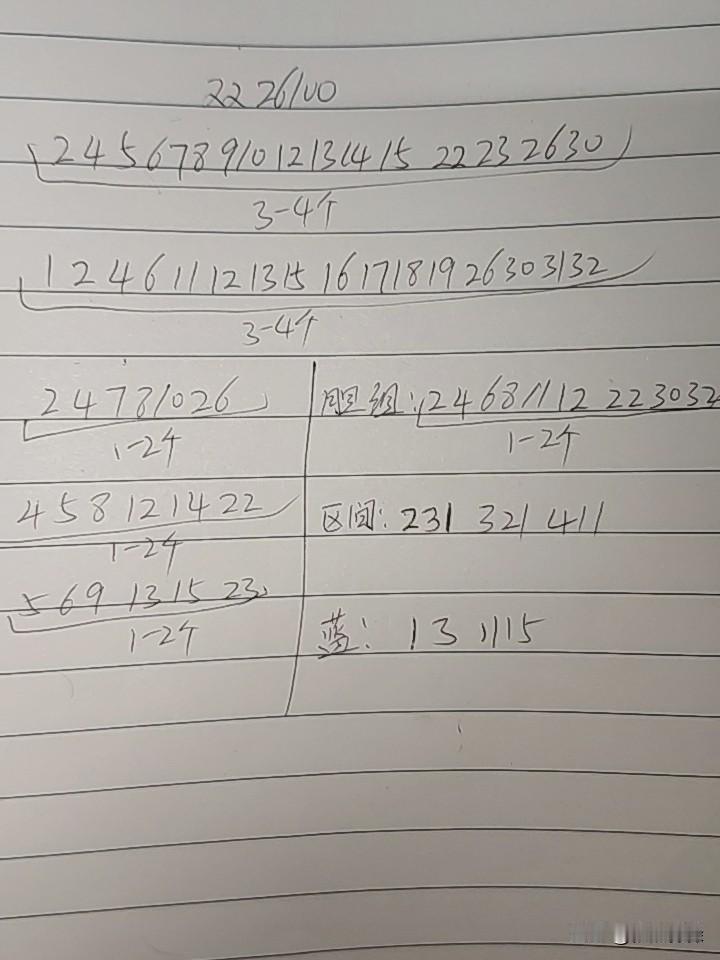 22 26/00
2 4 5 6 7 8 9 10 12 13 14 15 22 23 26 30
3-4个
1 2 4 6 11 12 13 15 16 17 18 19 26 30 31 32
3-4个
2 4 7 8 10 26
1-2个
4 5 8 12 14 22
1-2个
5 6 9 13 15 23
1-2个
胆组: 2 4 6 8 11 12 22 30 32
1-2个
区间: 231 321 411
蓝: 1 3 11 15